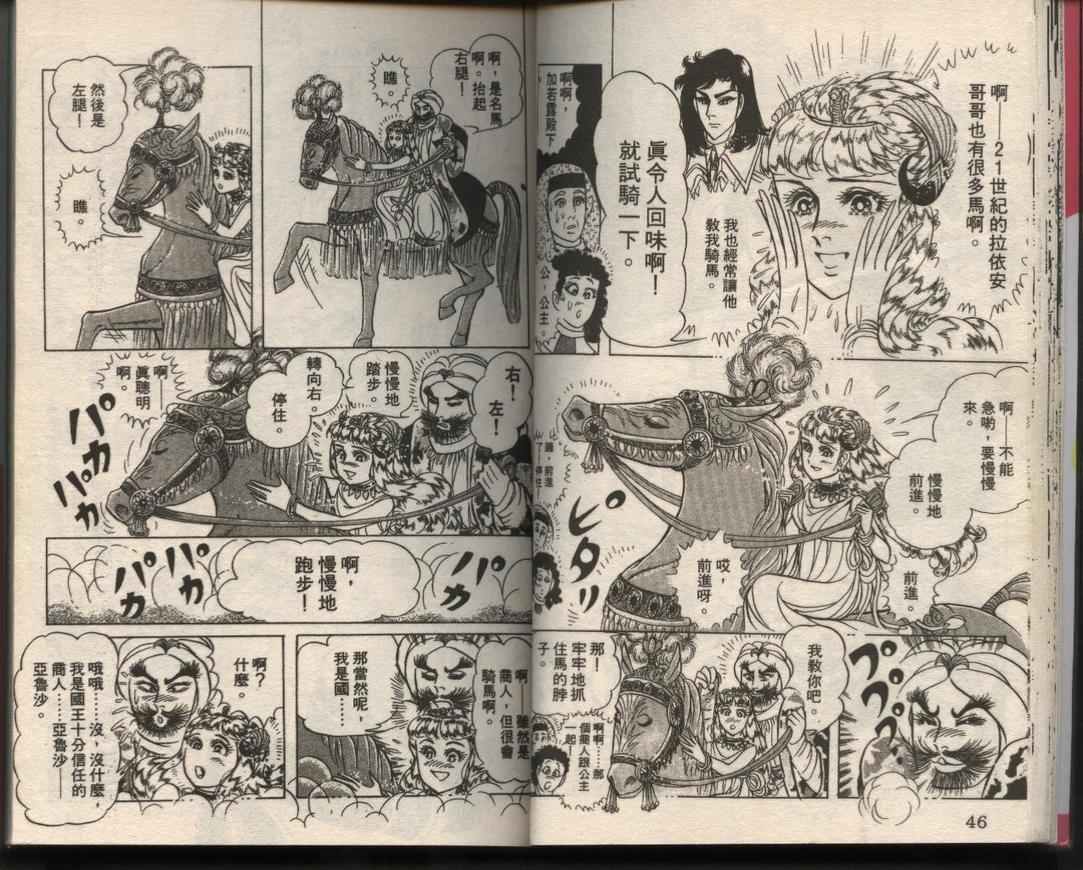 啊——21世紀的拉依安
哥哥也有很多馬啊。
我也經常讓他
教我騎馬。
眞令人回味啊！
就試騎一下。
啊啊，
加若露殿下
公，公主。
啊——不能
急喲，要慢慢
來。
慢慢地
前進。
前進。
哎，
前進呀。
ピタリ
ププププ
我教你吧。
那！
牢牢地抓
住馬的脖
子。
啊啊……那
個商人跟公主
一起！
46
啊，是名馬
啊。抬起
右腿！
瞧。
然後是
左腿！
瞧。
右！
左！
慢慢地
踏步。
轉向右。
停住。
啊——
眞聰明
啊。
パカ
パカ
パカ
啊，
慢慢地
跑步！
パカ
パカ
パカ
啊，雖然是
商人，但很會
騎馬啊。
那當然呢，
我是國……
啊？
什麼。
哦哦……沒，沒什麼，
我是國王十分信任的
商人……亞魯沙——
亞魯沙。